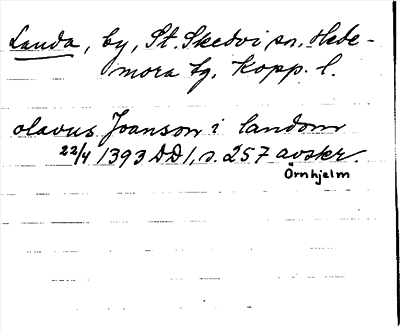 Landa, by, St. Skedvi sn, Hede-
mora tg. Kopp. l.
olavus Joanson i landom
22/4 1393 DD 1, s. 257 avskr.
Örnhjelm